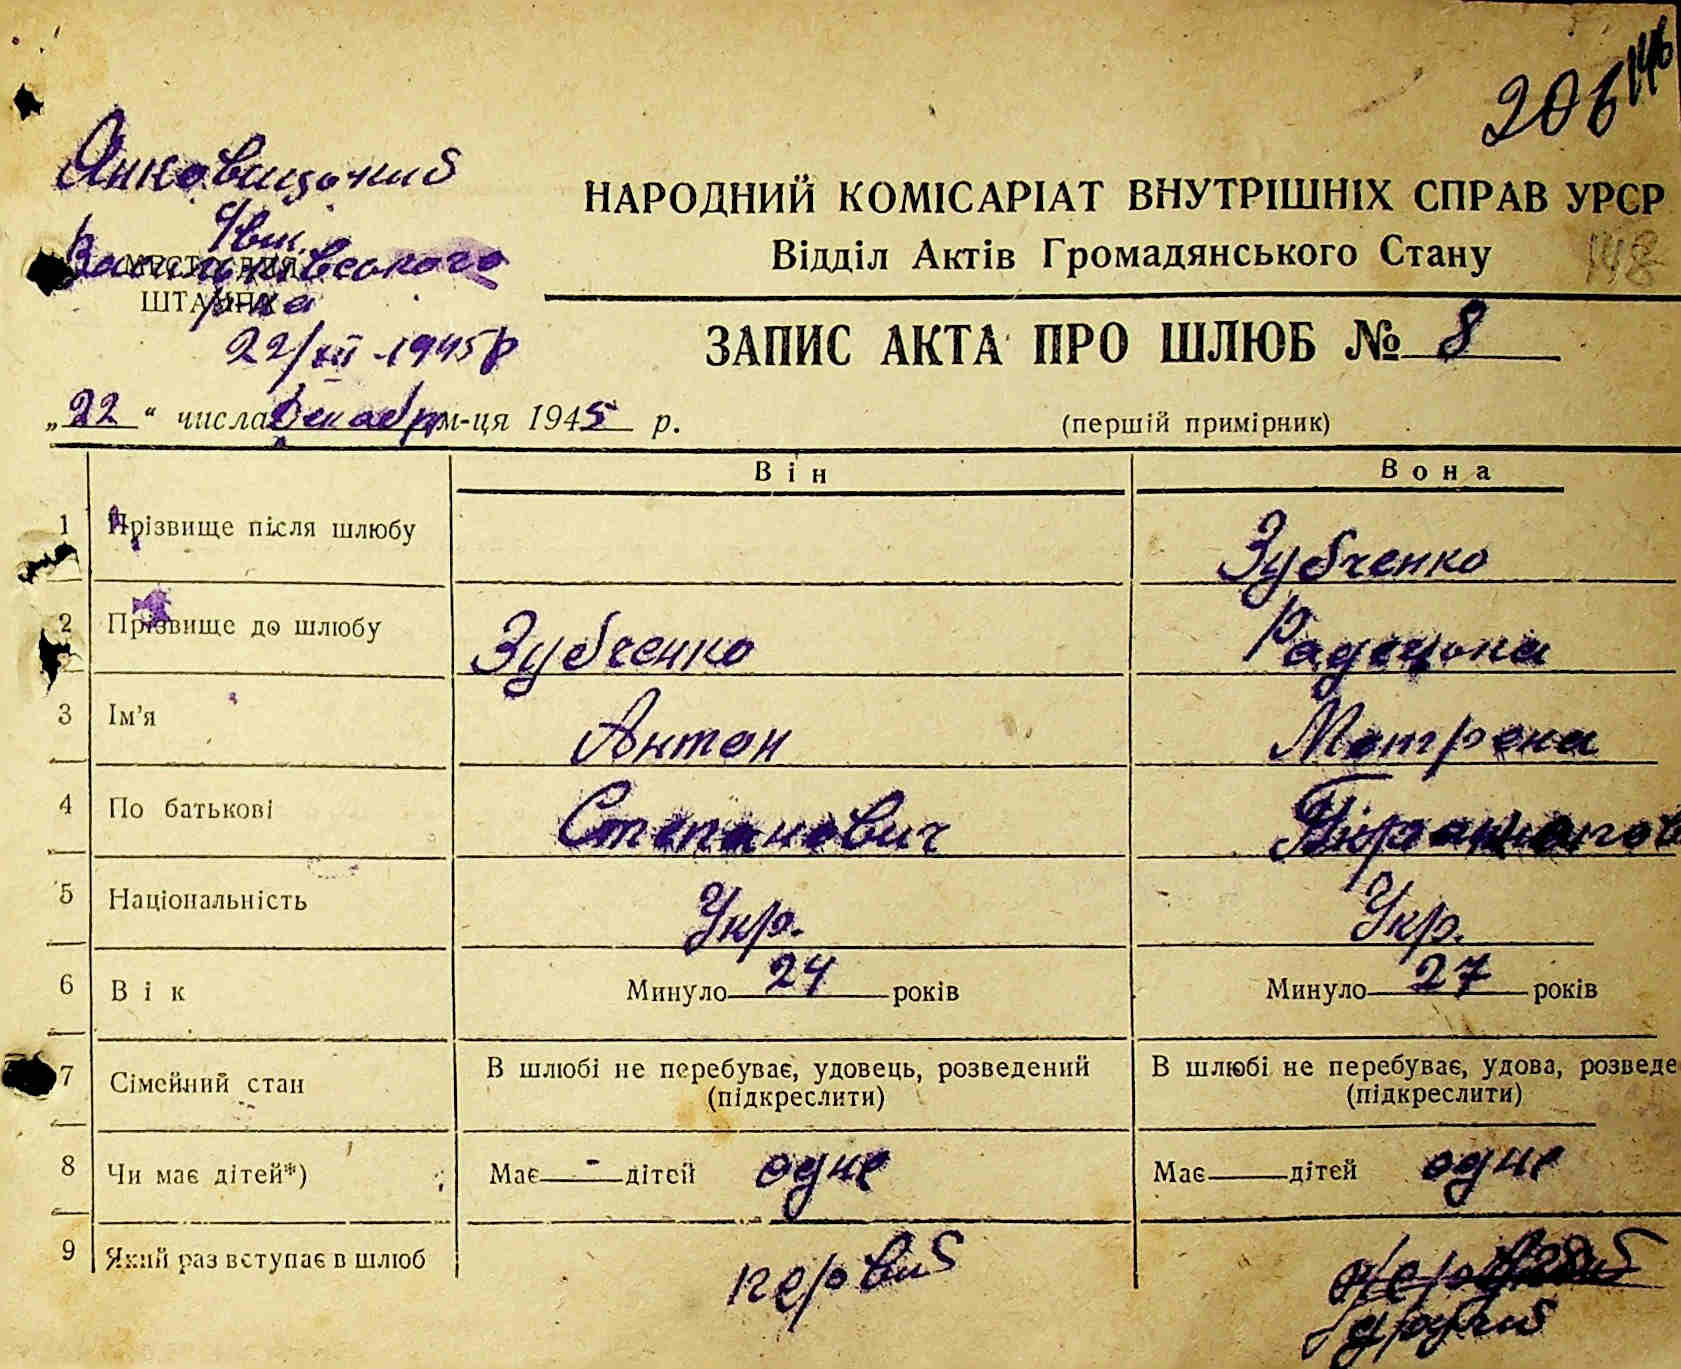 206 146
НАРОДНИЙ КОМІСАРІАТ ВНУТРІШНІХ СПРАВ УРСР
148
Відділ Актів Громадянського Стану
МЕСТО ДЛЯ
ШТАМПА
22/XII-1945 р
ЗАПИС АКТА ПРО ШЛЮБ № 8
„22“ числа Декабр м-ця 1945 р.
(першій примірник)
Він Вона
1 Прізвище після шлюбу Зубченко
2 Прізвище до шлюбу Зубченко Радецька
3 Ім'я Антон Мотрена
4 По батькові Степанович
5 Національність Укр. Укр.
6 Вік Минуло 24 років Минуло 27 років
7 Сімейний стан В шлюбі не перебуває, удовець, розведений В шлюбі не перебуває, удова, розведе
(підкреслити) (підкреслити)
8 Чи має дітей*) Має - дітей одне Має дітей одне
9 Який раз вступає в шлюб первий